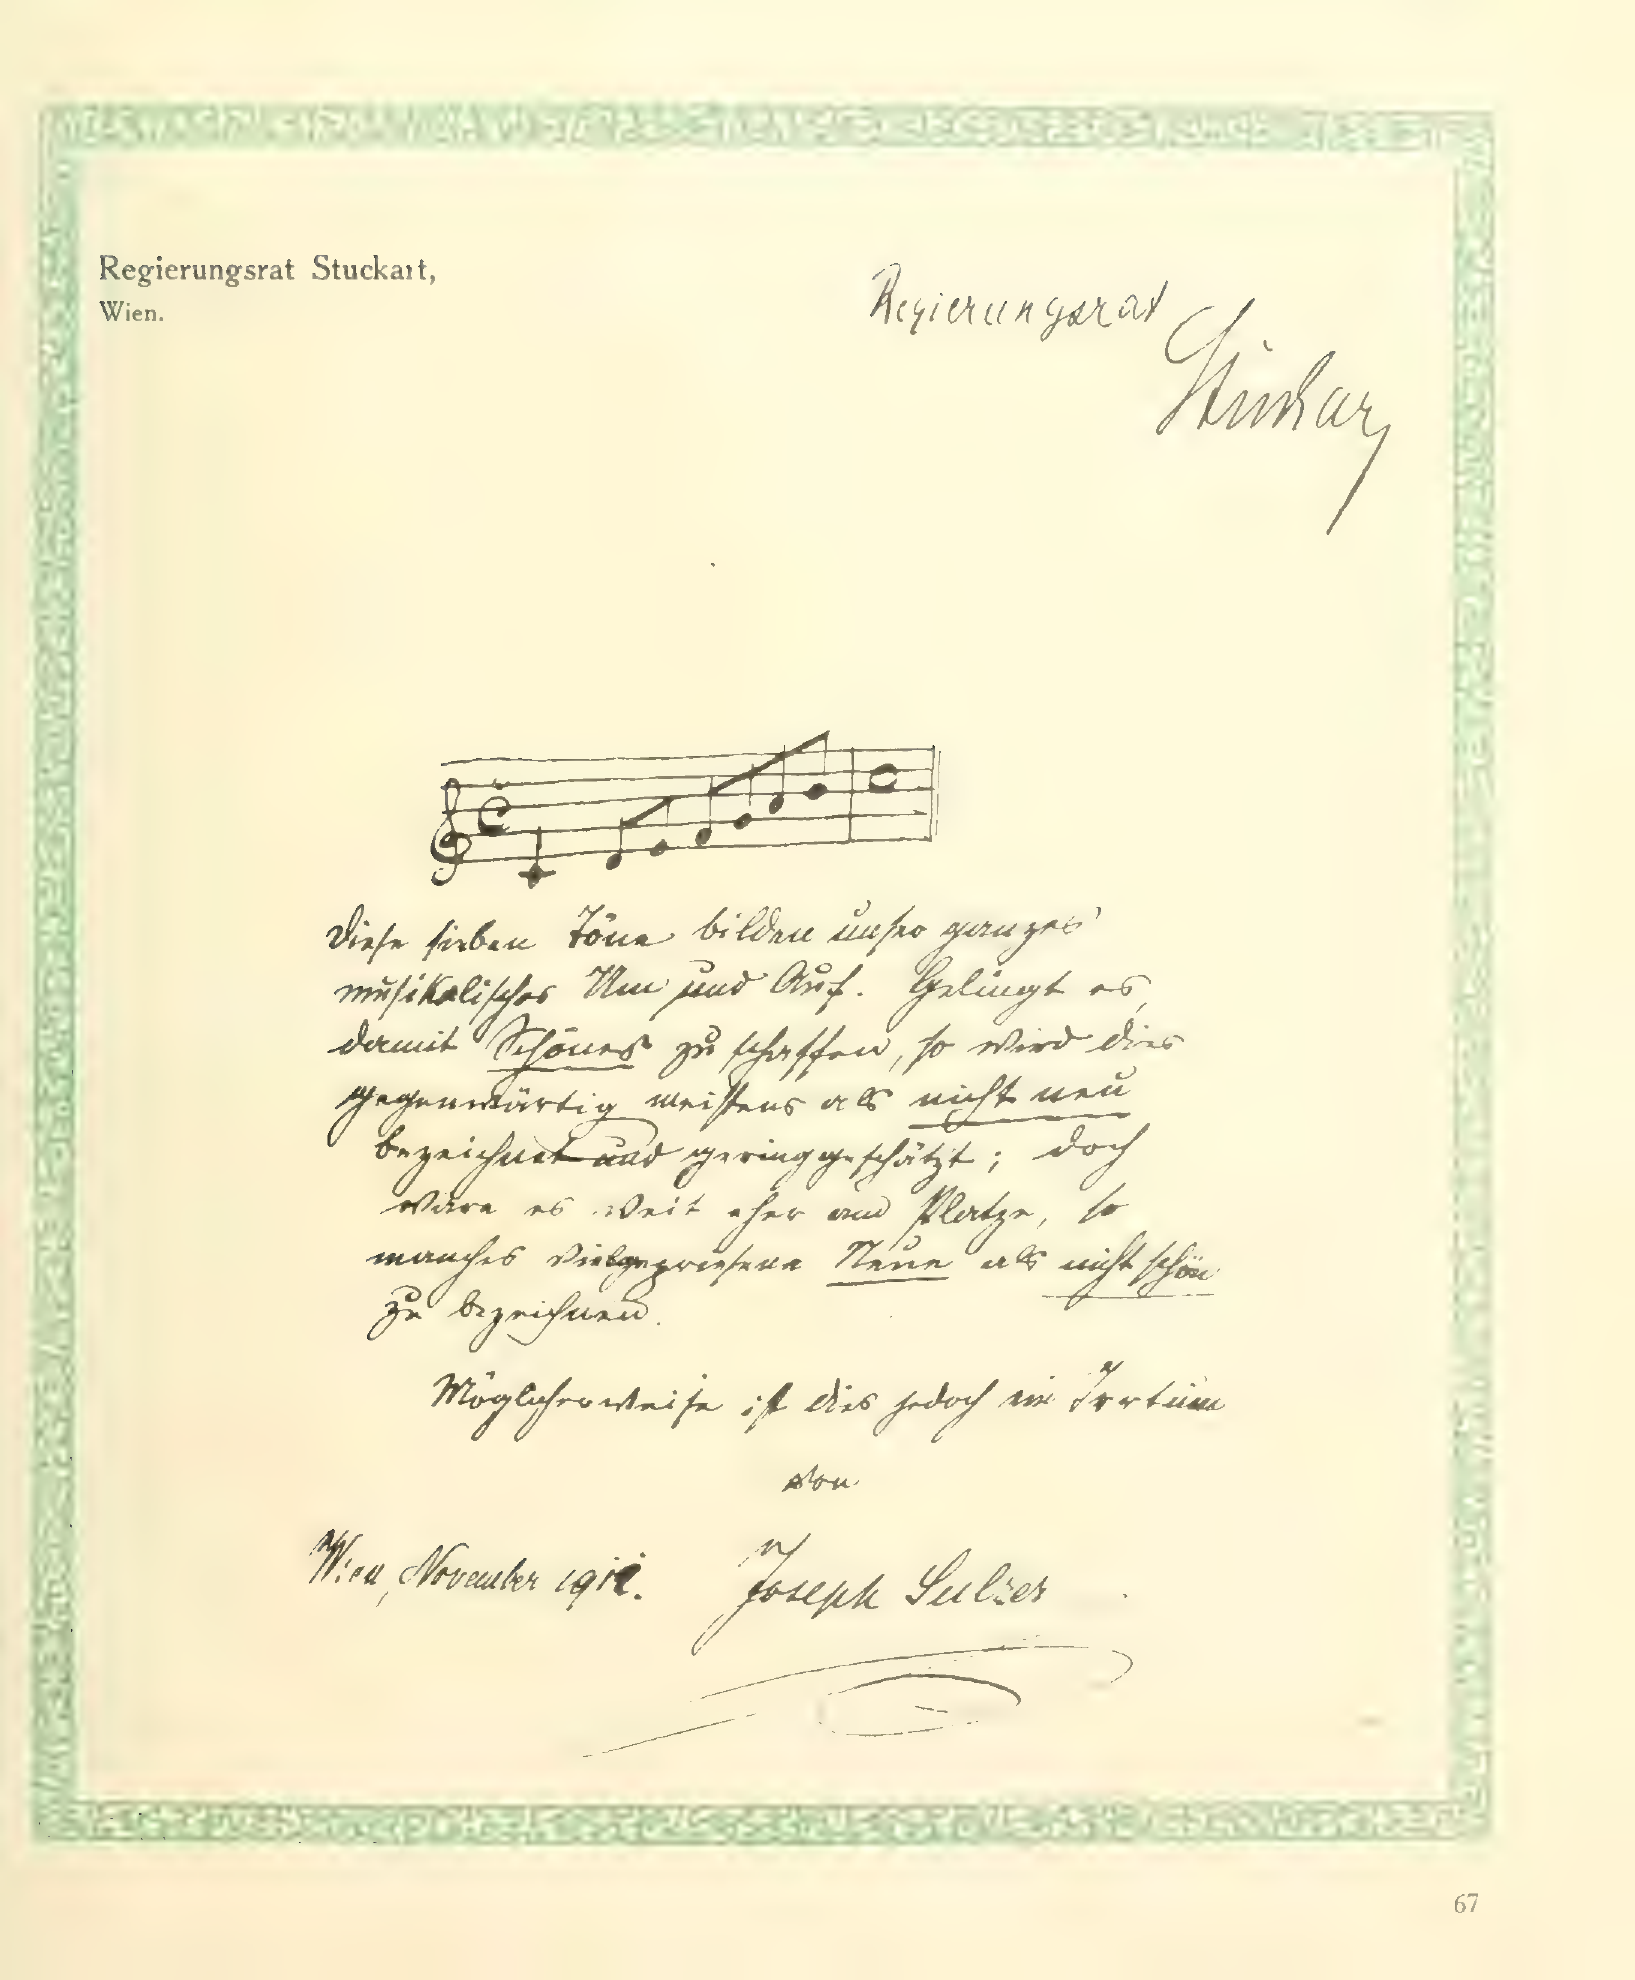 Regierungsrat Stuckart,
Wien.
Regierungsrat
Stuckart
Diese sieben Töne bilden unser ganzes
musikalisches Um und Auf. Gelingt es,
damit Schönes zu schaffen, so wird dies
gegenwärtig meistens als nicht neu
bezeichnet und geringgeschätzt; doch
wäre es weit eher am Platze, so
manches vielgepriesene Neue als nicht schön
zu bezeichnen.
Möglicherweise ist dies jedoch ein Irrtum
von
Wien, November
Joseph Sulzer
67